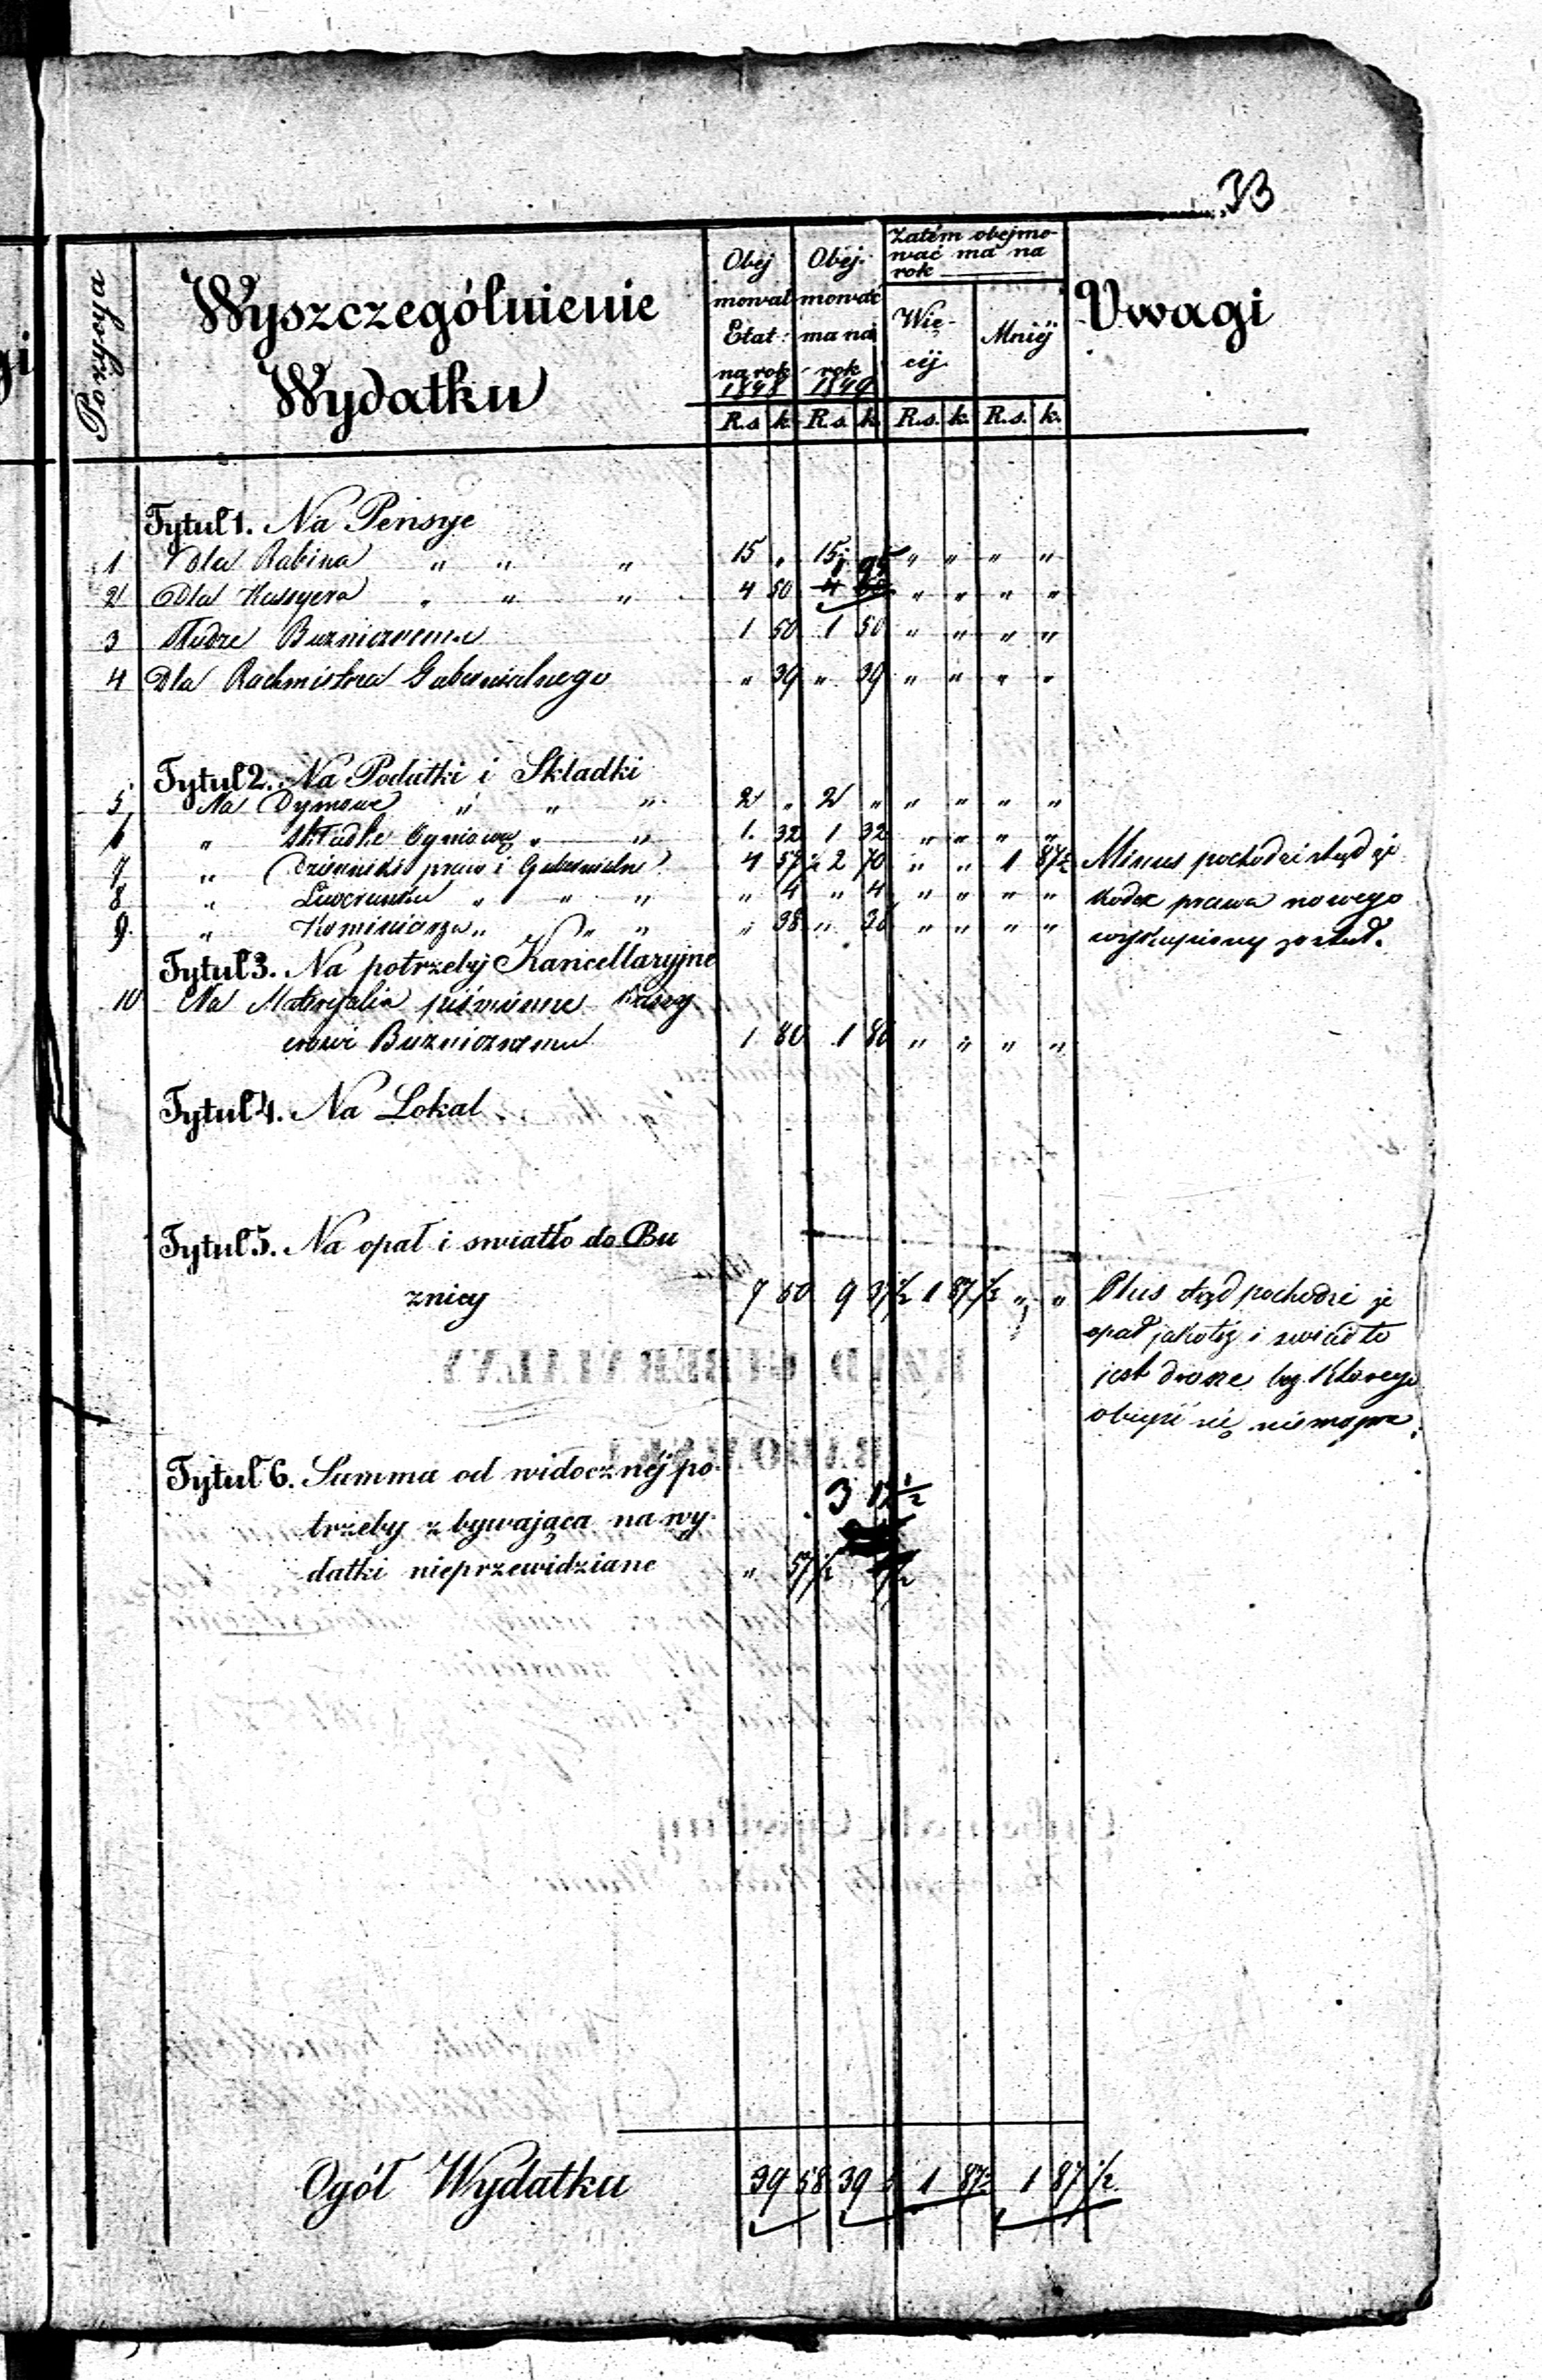 33
Pozycya
Wyszczególnienie
Wydatku
Obej
mował
Etat
na rok
1848
Obej-
mować
ma na
rok
1849
Zatém obejmo-
wać ma na
rok
Wię-
céj
Mniéj
Uwagi
R.s. k. R.s. k. R.s. k. R.s. k.
Tytuł 1. Na Pensye
1 Dla Rabina " " " 15 " 15 " " " " "
2 Dla Kassyera " " " 4 50 4 " " " "
3 Słudze Buznicznemu 1 50 1 50 " " " "
4 Dla Rachmistrza Gubernialnego " 39 " 39 " " " "
Tytuł 2. Na Podatki i Składki
5 Na Dymowe " " " 2 " 2 " " " " "
6 " składkę Ogniową " " 1 32 1 32 " " " "
7 " Dzienniki praw i Gubernialne 4 57½ 2 70 " " 1 87½ Minus pochodzi ztąd że
8 " " " " " 4 " 4 " " " " kodex prawa nowego
9 " Kominiarza " " " " 38 " 38 " " " " wykupiony został.
Tytuł 3. Na potrzeby Kancellaryjne
10 Na Materyalia piśmienne Kassy
erowi Buznicznemu 1 80 1 80 " " " "
Tytuł 4. Na Lokal
Tytuł 5. Na opał i swiatło do Bu
znicy 7 50 9 37½ 1 87½ " " Plus ztąd pochodzi że
opał jakotéż i swiatło
jest drosze bez którego
obejść się niemożna.
Tytuł 6. Summa od widocznéj po-
3 12½
trzeby zbywająca na wy-
datki nieprzewidziane " 57½
Ogół Wydatku 39 58 39 1 87½ 1 87½